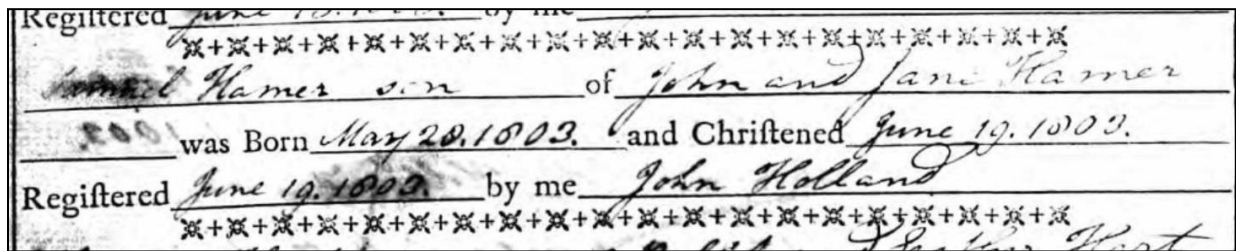 Regiſtered June 18. 1803. by me
Samuel Hamer son of John and Jane Hamer
was Born May 28. 1803. and Chriſtened June 19. 1803.
Regiſtered June 19. 1803. by me John Holland